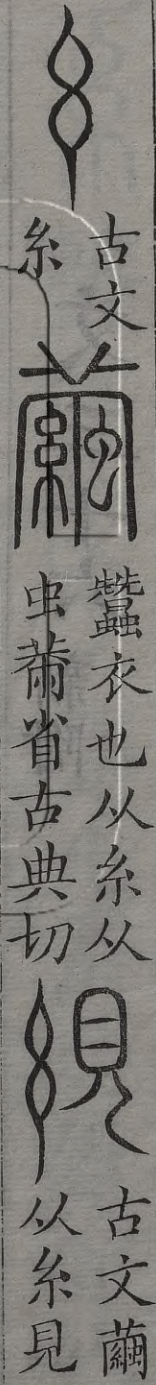 糸
古文
糸
繭
蠶衣也从糸从
虫黹省古典切
絸
古文繭
从糸見